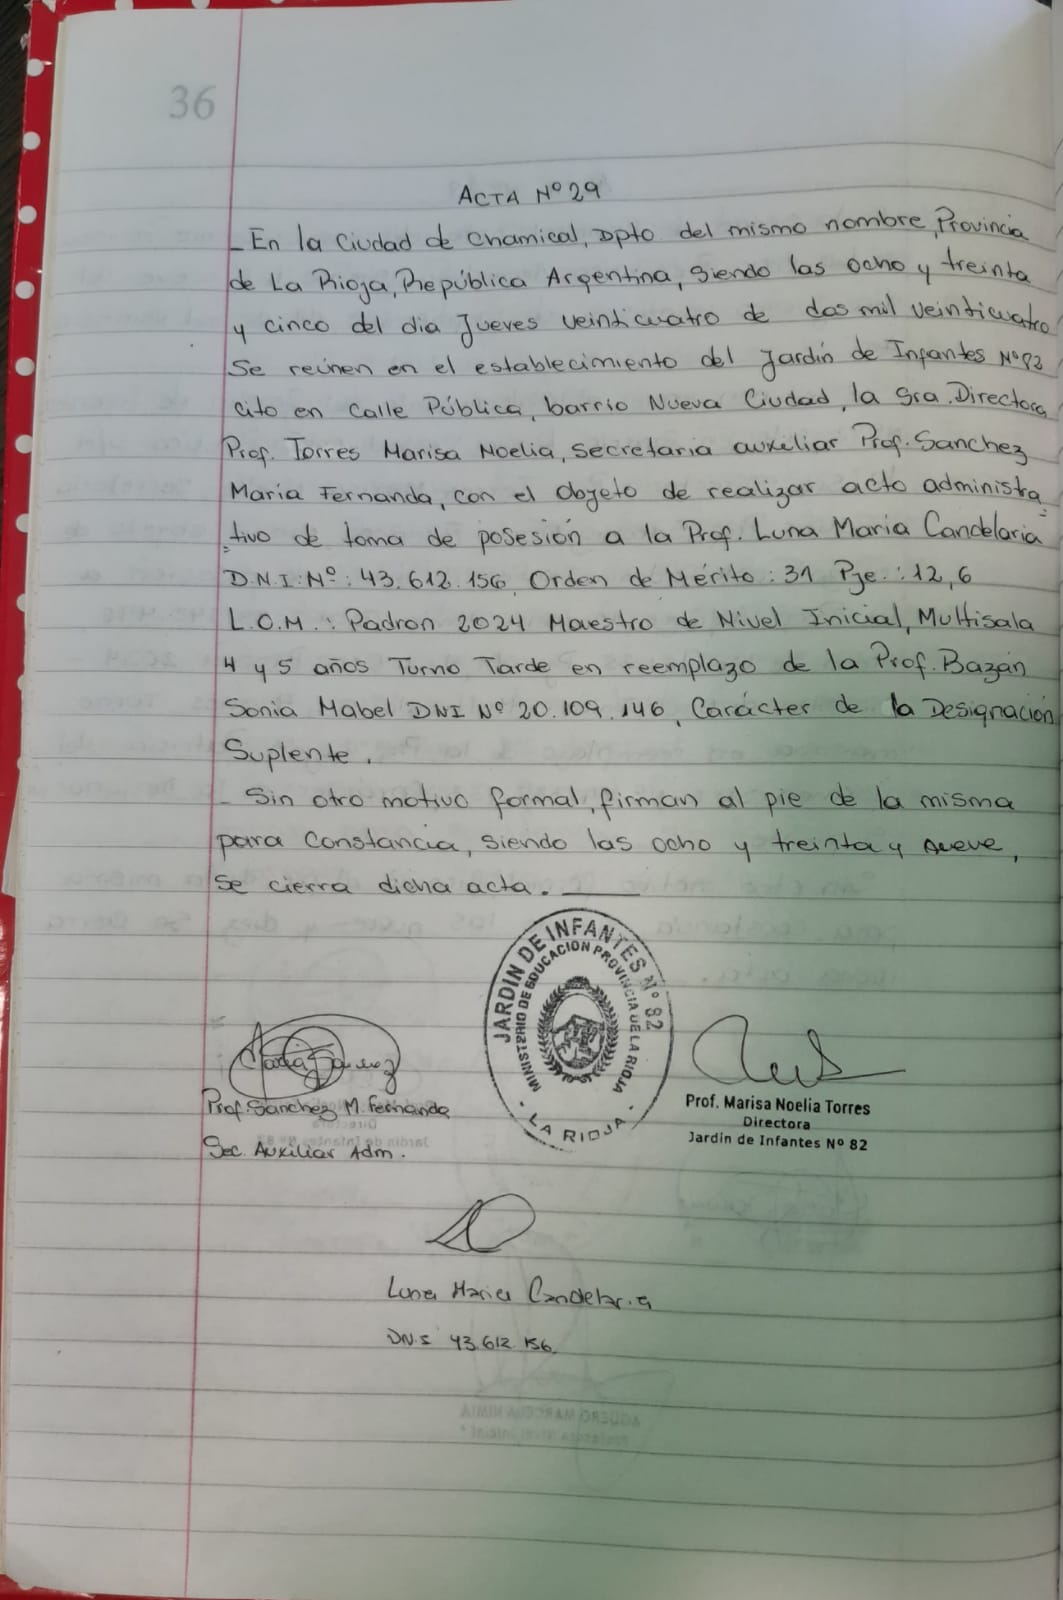 36
ACTA Nº 29
_ En la Ciudad de Chamical, Dpto. del mismo nombre, Provincia
de La Rioja, República Argentina, siendo las ocho y treinta
y cinco del dia Jueves veinticuatro de dos mil veinticuatro
Se reúnen en el establecimiento del Jardín de Infantes Nº 82
cito en Calle Pública, barrio Nueva Ciudad, la Sra. Directora
Prof. Torres Marisa Noelia, Secretaria auxiliar Prof. Sanchez
Maria Fernanda, con el Objeto de realizar acto administra
tivo de toma de posesión a la Prof. Luna Maria Candelaria
D.N.I. Nº: 43.612.156, Orden de Mérito: 31 Pje.: 12,6
L.O.M.: Padron 2024 Maestro de Nivel Inicial, Multisala
4 y 5 años Turno Tarde en reemplazo de la Prof. Bazán
Sonia Mabel DNI Nº 20.109.146, Carácter de la Designación
Suplente.
_ Sin otro motivo formal, firman al pie de la misma
para Constancia, siendo las ocho y treinta y nueve,
Se cierra dicha acta. ____
JARDIN DE INFANTES Nº 82
MINISTERIO DE EDUCACION PROVINCIA DE LA RIOJA
· LA RIOJA ·
Prof. Sanchez M. Fernanda
Sec. Auxiliar Adm.
Prof. Marisa Noelia Torres
Directora
Jardín de Infantes Nº 82
Luna Maria Candelaria
DNI 43.612.156